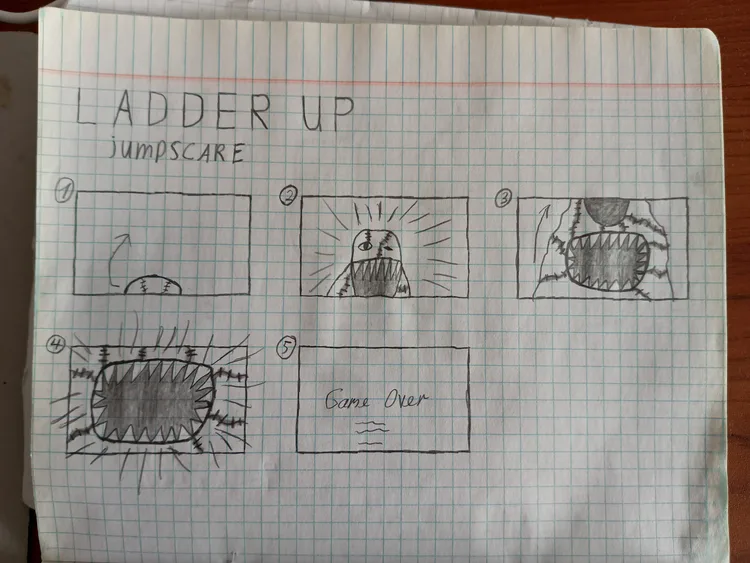 LADDER UP
jUMPSCARE
1
2
3
4
5
Game Over